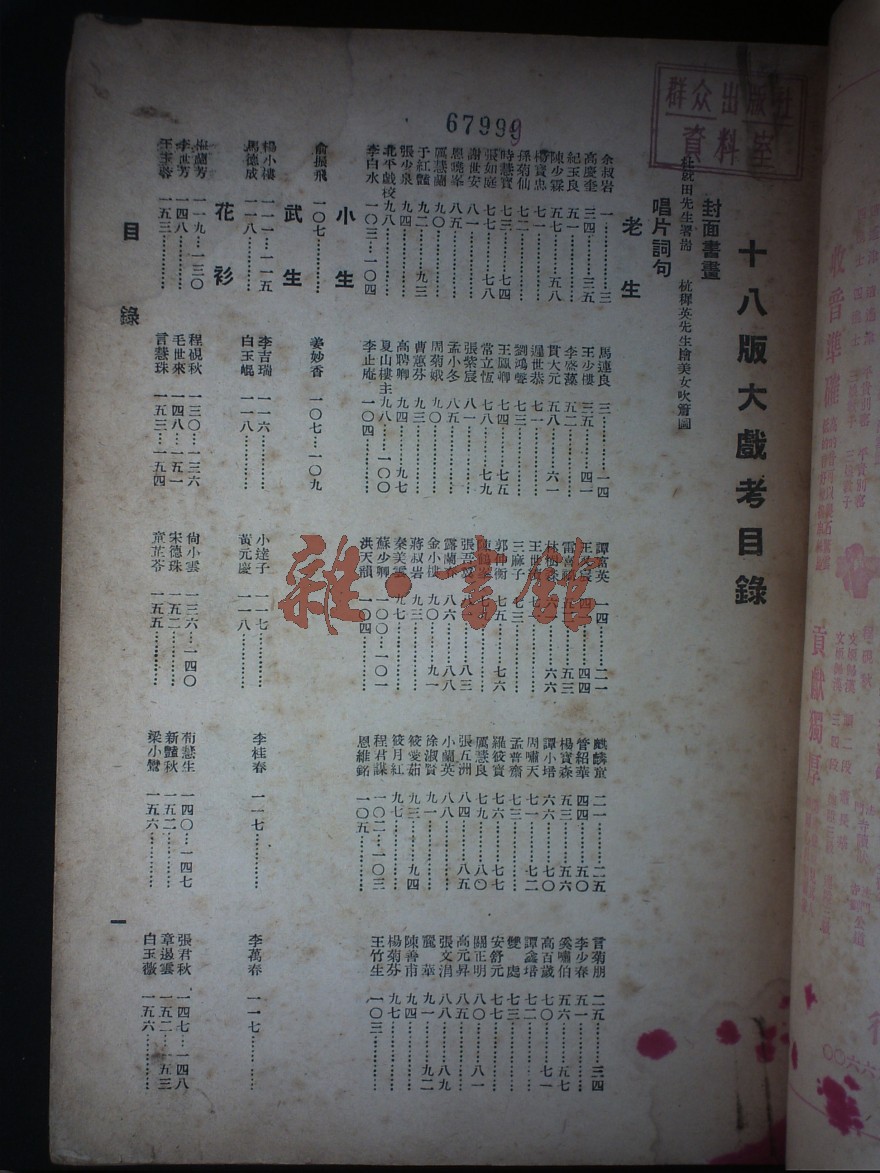 67999
群众出版社
資料室
十八版大戲考目錄
封面書畫
杜就田先生署耑 杭穉英先生繪美女吹簫圖
唱片詞句
老生
余叔岩 一………三 馬連良 三………一四 譚富英 一四……二一 麒麟童 二一……二五 言菊朋 二五……三四
高慶奎 三四……三五 王少樓 三五……四一 王又宸 四一……四四 管紹華 四四……五〇 李少春 五一………
紀玉良 五一……… 李盛藻 五二……… 雷喜福 五二……五三 楊寶森 五三……五六 奚嘯伯 五六……五七
陳少霖 五七……五八 貫大元 五八……六一 林樹森 六一……六六 譚小培 六六……七〇 高百歲 七〇……七一
楊寶忠 七一……… 遲世恭 七一……… 王世續 七一……… 周嘯天 七一……七二 譚鑫培 七二………
孫菊仙 七二……… 劉鴻聲 七三……… 三麻子 七三……… 孟普齋 七三……… 雙處 七三………
時慧寶 七三……七四 王鳳卿 七四……七五 郭仲衡 七五……七六 羅筱寶 七六……七七 安舒元 七七………
張如庭 七七……七八 常立恆 七八……七九 陳鶴峯 七九……… 厲慧良 七九……八〇 關正明 八〇……八一
謝世安 八一……… 張紫宸 八一……… 張吾翼 八一……八三 張五洲 八四……八五 高元昇 八五………
恩曉峯 八五……… 孟小冬 八五……… 露蘭春 八六……八八 小蘭英 八八……… 張文涓 八八……八九
厲慧蘭 九〇……… 周菊娥 九〇……… 金小樓 九〇……九一 徐淑賢 九一……… 麗華 九一……九二
于紅豔 九二……九三 曹蕙芬 九三……… 蔣叔岩 九三……… 筱愛茹 九三……九四 陳善甫 九四………
張少泉 九四……… 高聘卿 九四……九七 秦美雲 九七……… 筱月紅 九七……… 楊菊芬 九七………
北平戲校 九八……… 夏山樓主 九八……一〇〇 蘇少卿 一〇〇…一〇一 程君謀 一〇二…一〇三 王竹生 一〇三………
李白水 一〇三…一〇四 李止庵 一〇四……… 洪天顯 一〇四……… 恩維銘 一〇五………
小生
俞振飛 一〇七……… 姜妙香 一〇七…一〇九
武生
楊小樓 一一一…一一五 李吉瑞 一一六……… 小達子 一一七……… 李桂春 一一七……… 李萬春 一一七………
馬德成 一一八……… 白玉崐 一一八……… 黃元慶 一一八………
花衫
梅蘭芳 一一九…一三〇 程硯秋 一三〇…一三六 尙小雲 一三六…一四〇 荀慧生 一四〇…一四七 張君秋 一四七…一四八
李世芳 一四八……… 毛世來 一四八…一五一 宋德珠 一五二……… 新豔秋 一五二……… 章遏雲 一五二…一五三
王玉蓉 一五三……… 言慧珠 一五三…一五四 童芷苓 一五五……… 梁小鸞 一五六……… 白玉薇 一五六………
目錄
一
雜·書館
收音準確
貢獻獨厚